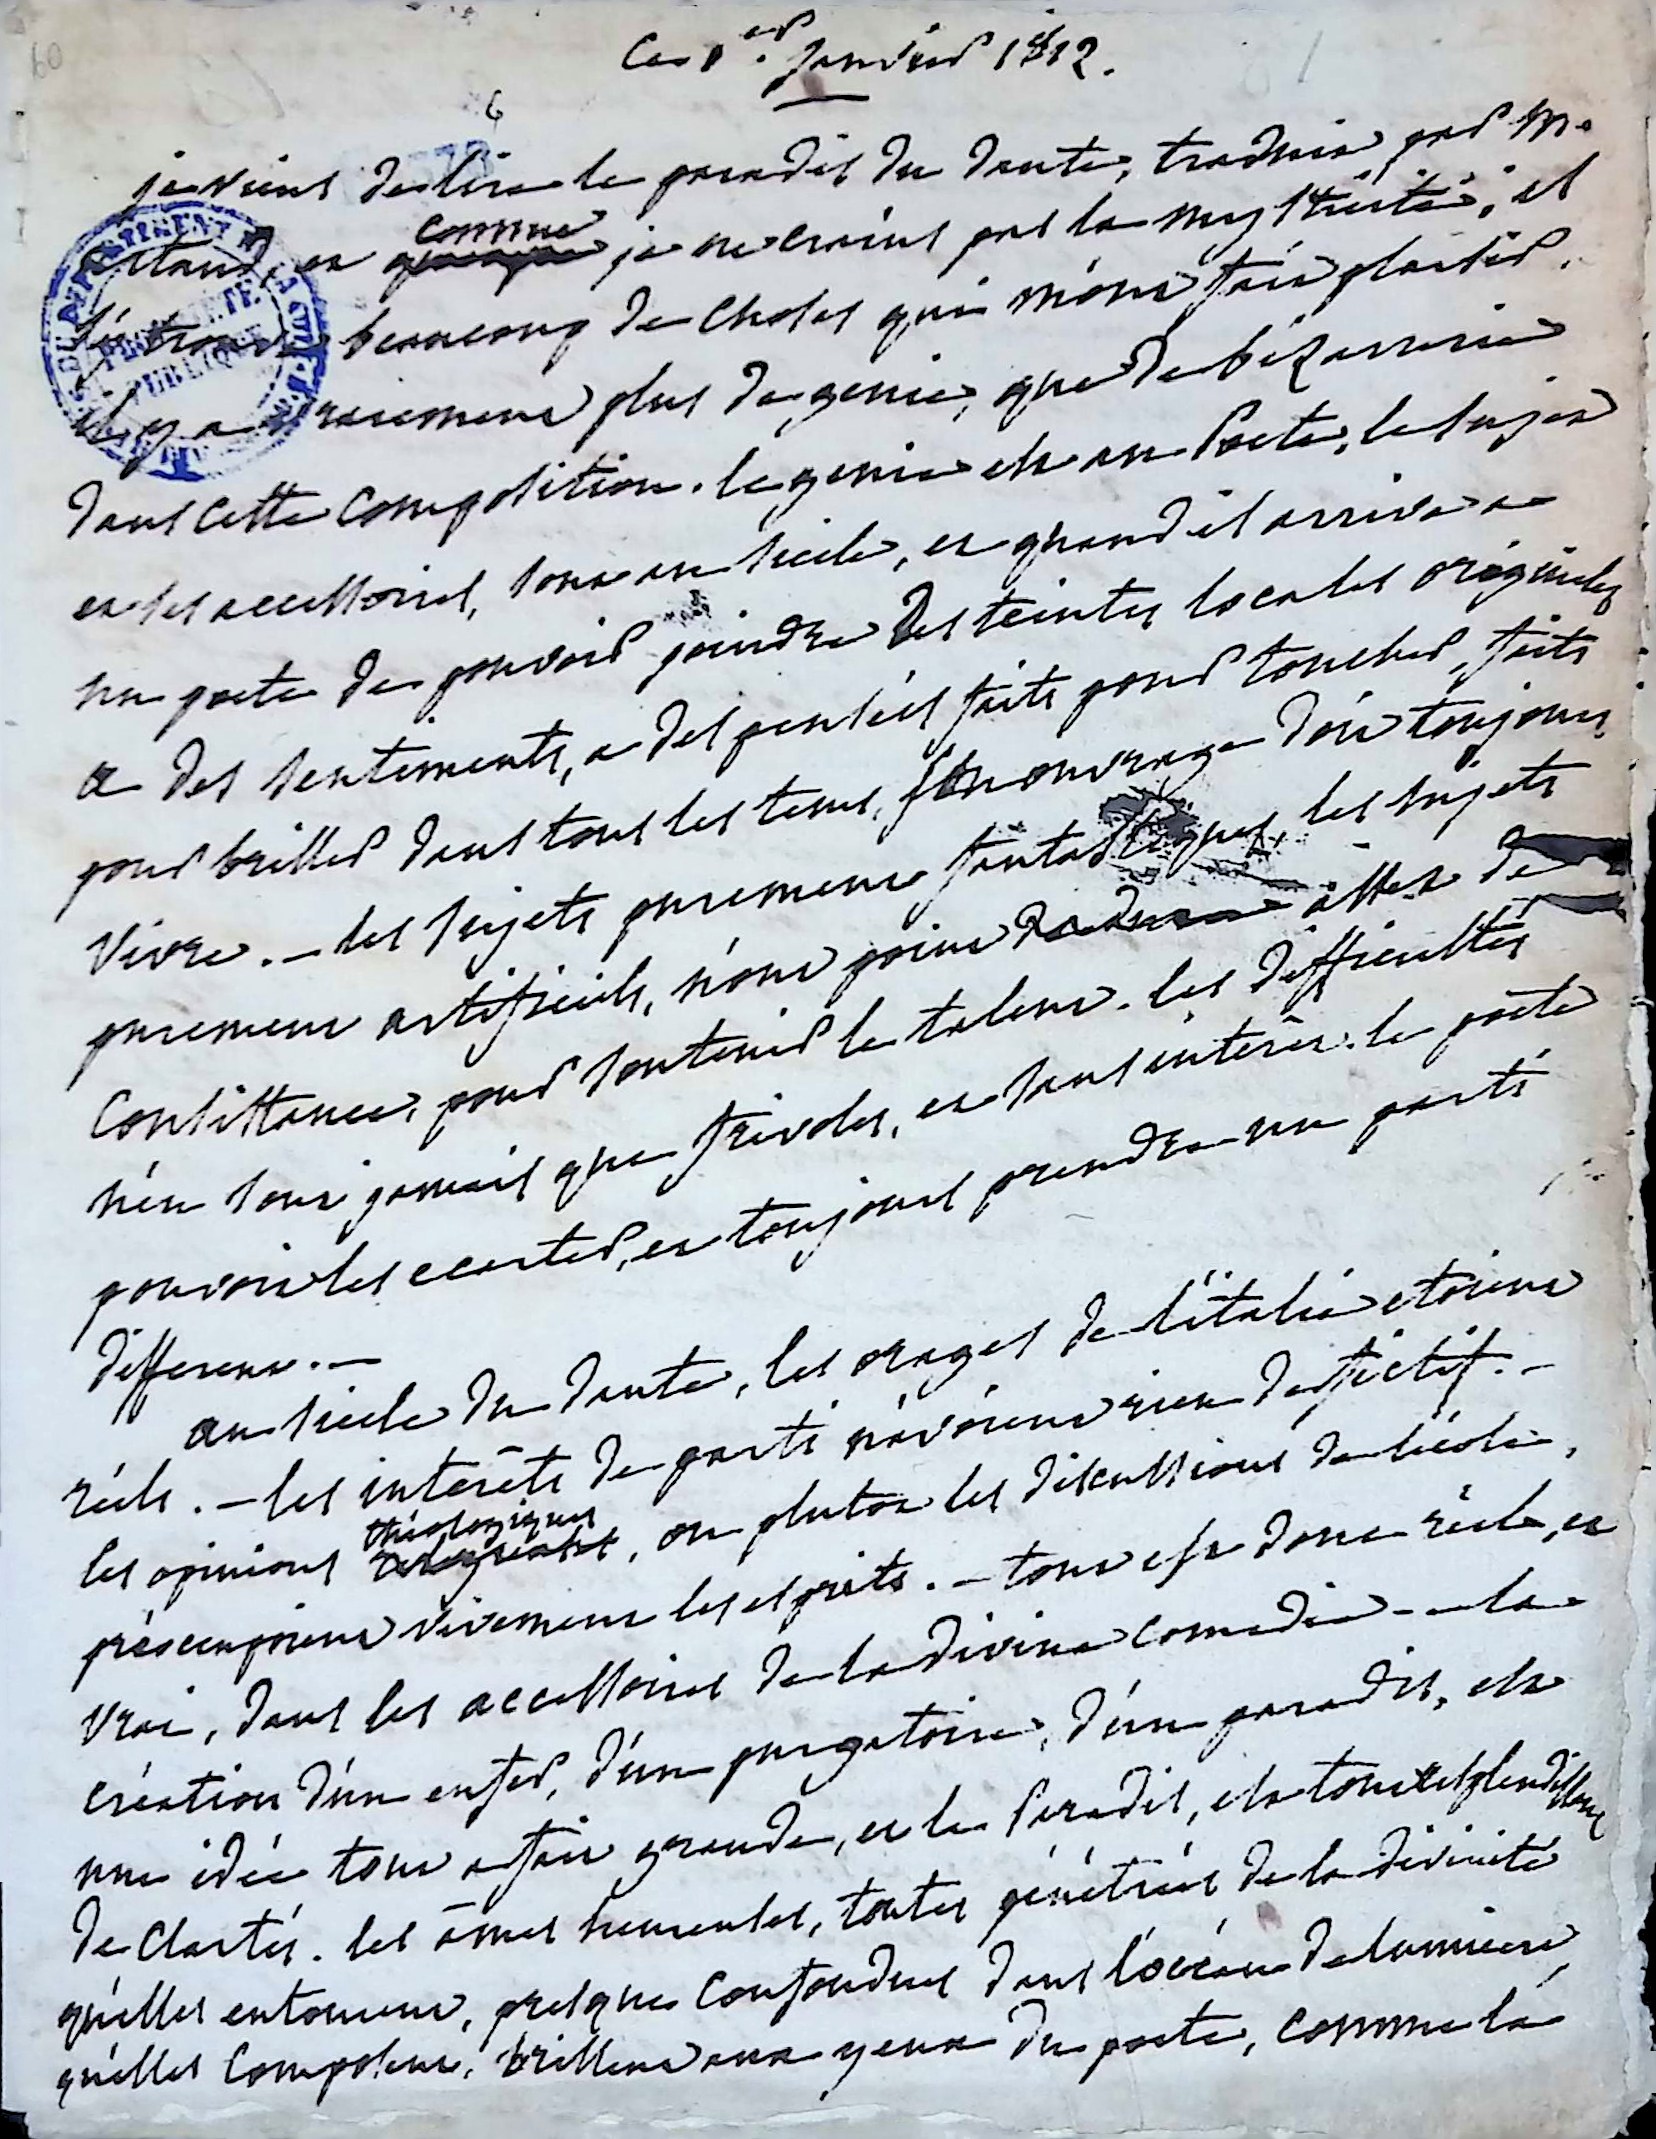 60
Ce 1er. janvier 1812.
6
je viens de lire le paradis du dante, traduit par Mr.
artaud, et comme je ne crains pas la mysticité, et
j'y trouve beaucoup de choses qui m'ont fait plaisir.
il y a vraiment plus de genie, que de bizarrerie
dans cette composition. le genie est au Poete, le sujet
et les accessoires, sont au siecle, et quand il arrive a
un poete de pouvoir joindre des teintes locales originales
a des sentiments, a des pensées faits pour toucher, faits
pour briller dans tous les tems, son ouvrage doit toujours
vivre. — les sujets purement fantastiques, les sujets
purement artificiels, n'ont point assez de
consistance, pour soutenir le talent. les difficultés
n'en sont jamais que frivoles, et sans intérêt. le poete
pouvoit les ecarter, et toujours prendre un parti
different. —
au siecle du dante, les orages de l'italie etoient
réels. — les intérêts de parti n'avoient rien de fictif. —
les opinions théologiques, ou plutot les discussions de l'école,
préoccupoient vivement les esprits. — tout est donc réel, et
vrai, dans les accessoires de la divine comedie — la
création d'un enfer, d'un purgatoire, d'un paradis, est
une idée tout a fait grande, et le Paradis, est tout resplendissant
de clartés. les âmes heureuses, toutes pénétrées de la divinité
qu'elles entourent, presque confondues dans l'océan de lumiere,
qu'elles composent, brillent aux yeux du poete, comme la